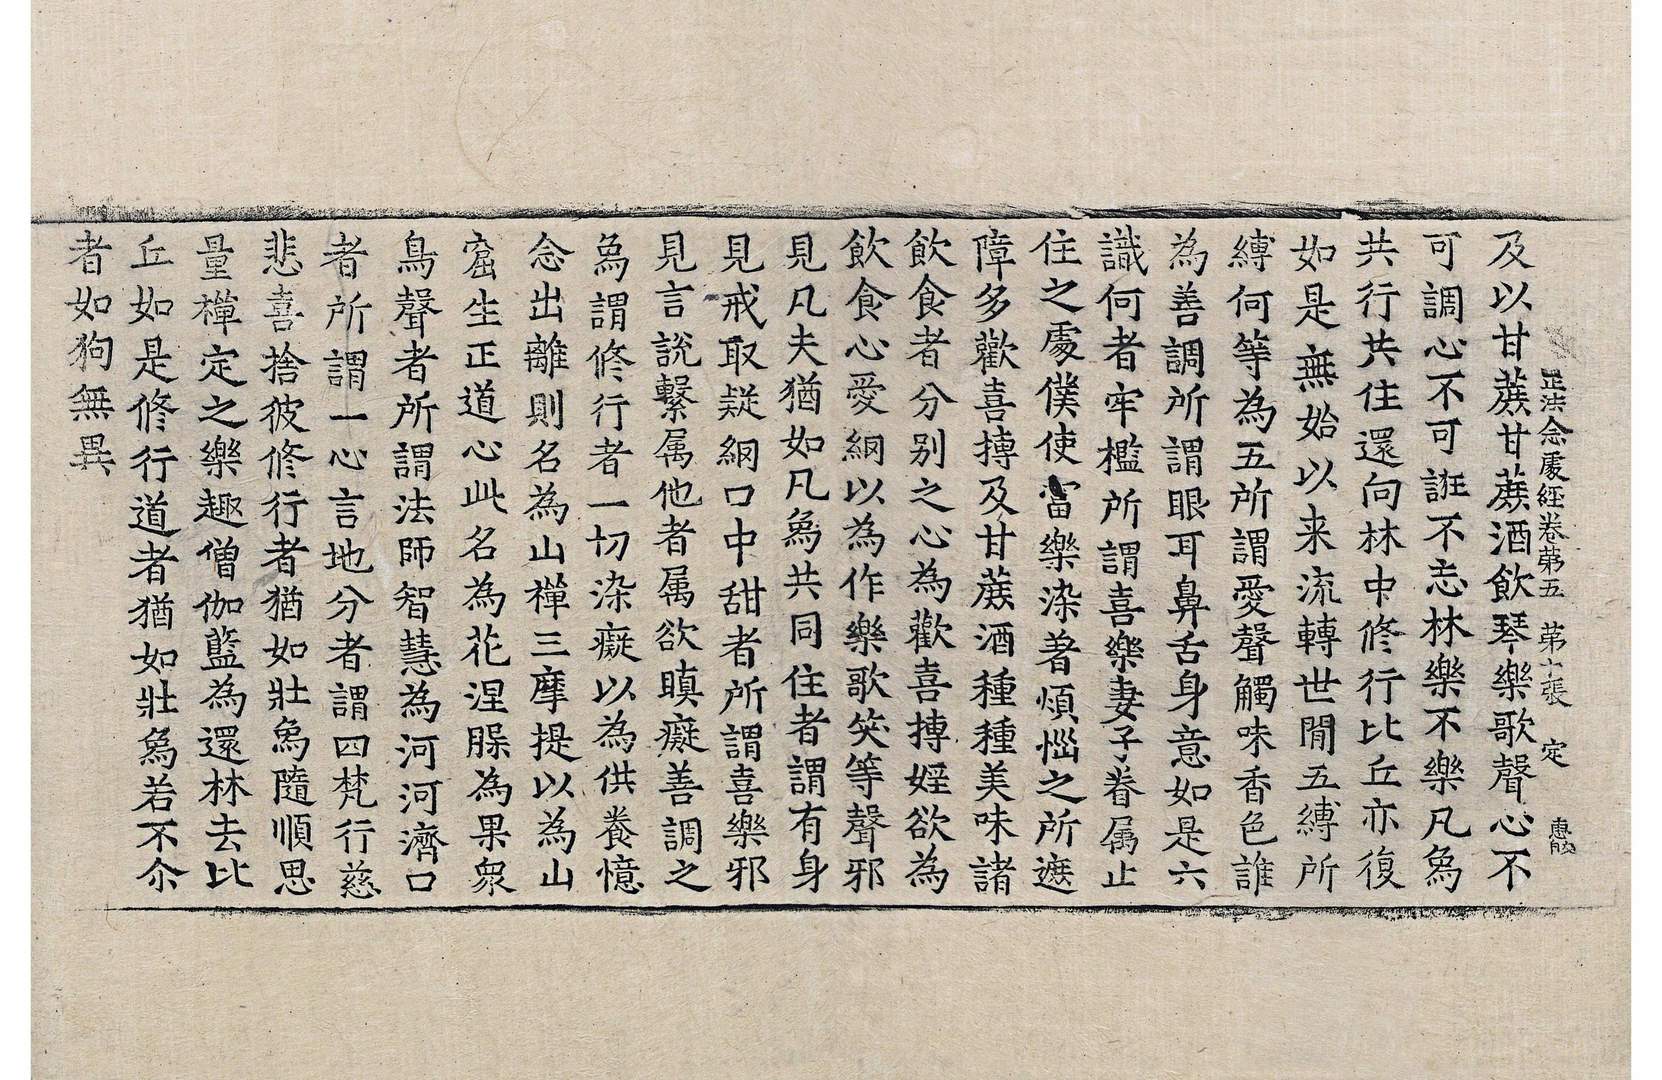 正法念處經卷第五 第十張 定
及以甘蔗甘蔗酒飲琴樂歌聲心不
可調心不可誑不忘林樂不樂凡為
共行共住還向林中修行比丘亦復
如是無始以来流轉世間五縛所
縛何等為五所謂愛聲觸味香色誰
為善調所謂眼耳鼻舌身意如是六
識何者牢檻所謂喜樂妻子眷属止
住之處僕使富樂染著煩惱之所遮
障多歡喜摶及甘蔗酒種種美味諸
飲食者分別之心為歡喜摶婬欲為
飲食心愛網以為作樂歌笑等聲邪
見凡夫猶如凡象共同住者謂有身
見戒取疑網口中甜者所謂喜樂邪
見言說繫属他者属欲瞋癡善調之
象謂修行者一切染癡以為供養憶
念出離則名為山禪三摩提以為山
窟生正道心此名為花涅槃為果衆
鳥聲者所謂法師智慧為河河濟口
者所謂一心言地分者謂四梵行慈
悲喜捨彼修行者猶如壯象隨順思
量禪定之樂趣僧伽藍為還林去比
丘如是修行道者猶如壯象若不尒
者如狗無異